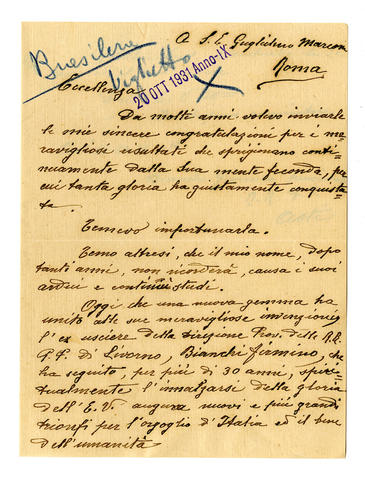 A S. E. Guglielmo Marconi
Roma
Biglietto
20 OTT 1931 Anno-IX
Eccellenza
Da molti anni volevo inviarle
le mie sincere congratulazioni per i me-
ravigliosi risultati che sprigionano conti-
nuamente dalla Sua mente feconda, per
cui tanta gloria ha giustamente conquista-
ta.
Temevo importunarla.
Temo altresì, che il mio nome, dopo
tanti anni, non ricorderà, causa i suoi
ardui e continui studi.
Oggi che una nuova gemma ha
unito alle sue meravigliose invenzioni,
l'ex usciere della Direzione Prov. delle R.R.
P.P. di Livorno, Bianchi Firmino, che
ha seguito, per più di 30 anni, spiri-
tualmente l'innalzarsi della gloria
dell'E.V. augura nuovi e più grandi
trionfi per l'orgoglio d'Italia ed il bene
dell'umanità